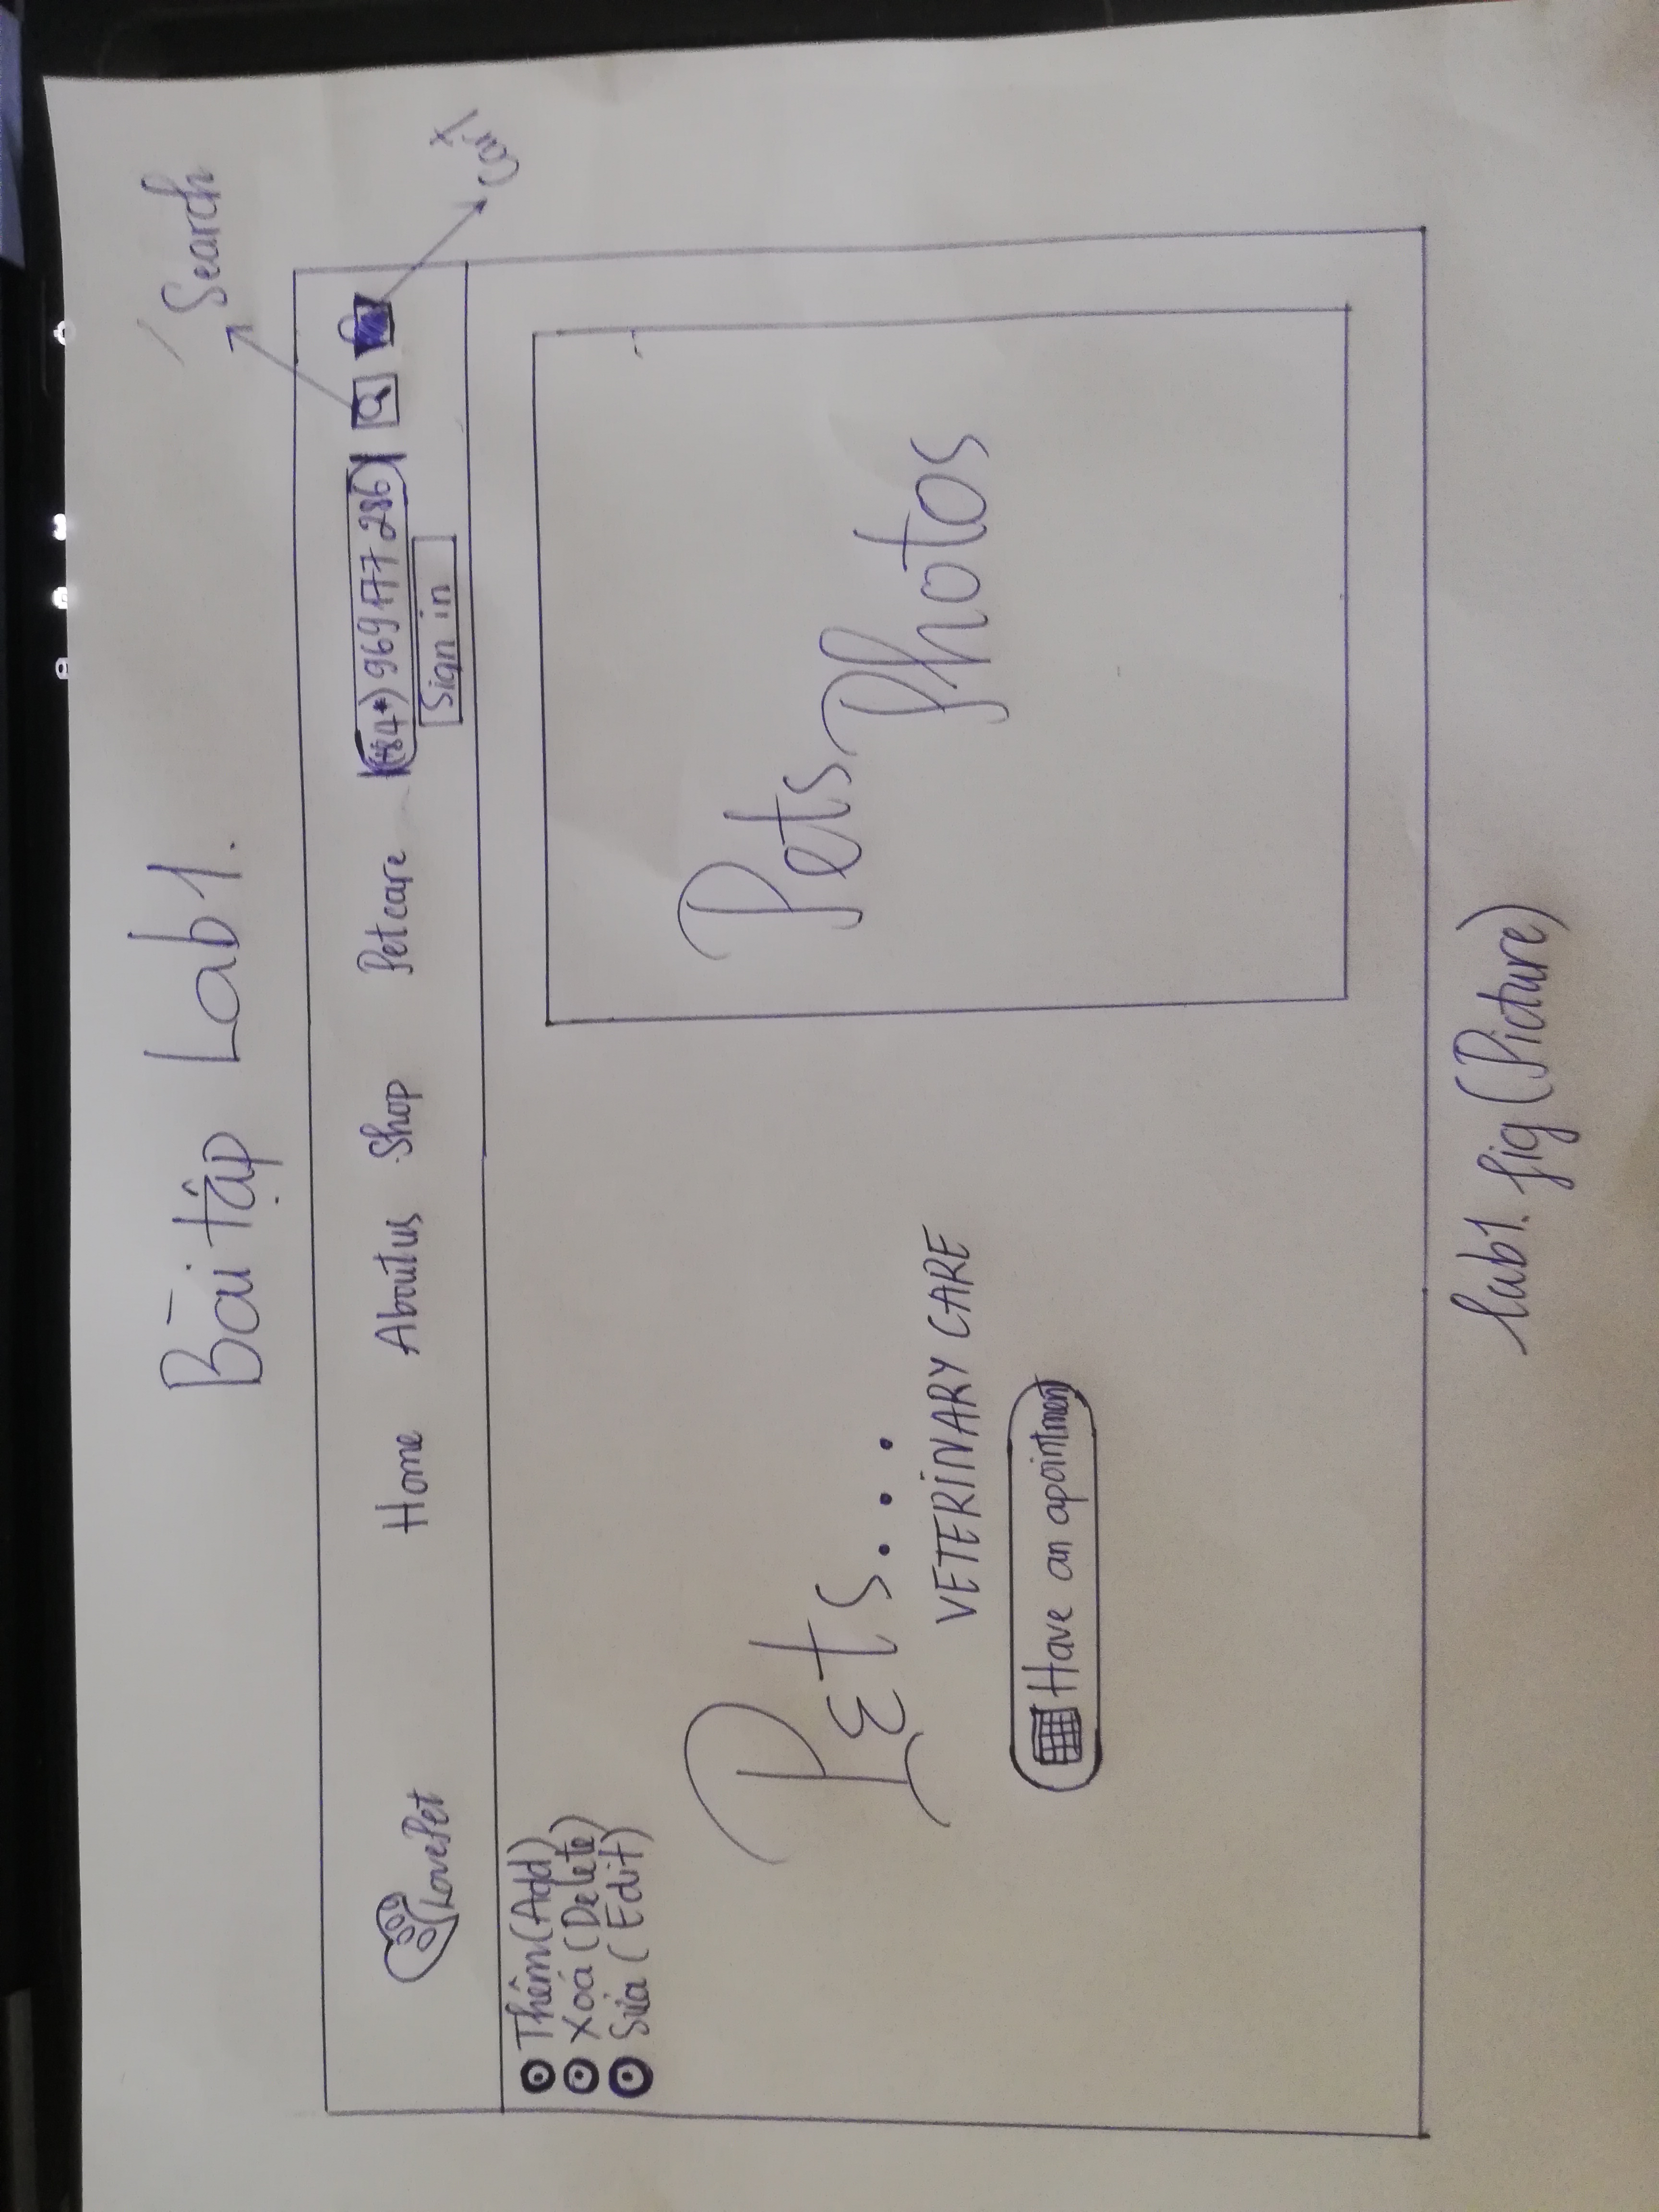 Bài tập Lab1.
Search
Cart
LovePet
Home About us Shop Petcare (+84*) 969 177 286
Sign in
Thêm (Add)
Xoá (Delete)
Sửa (Edit)
Pets...
VETERINARY CARE
Have an apointment
Pets Photos
lab1. fig (Picture)